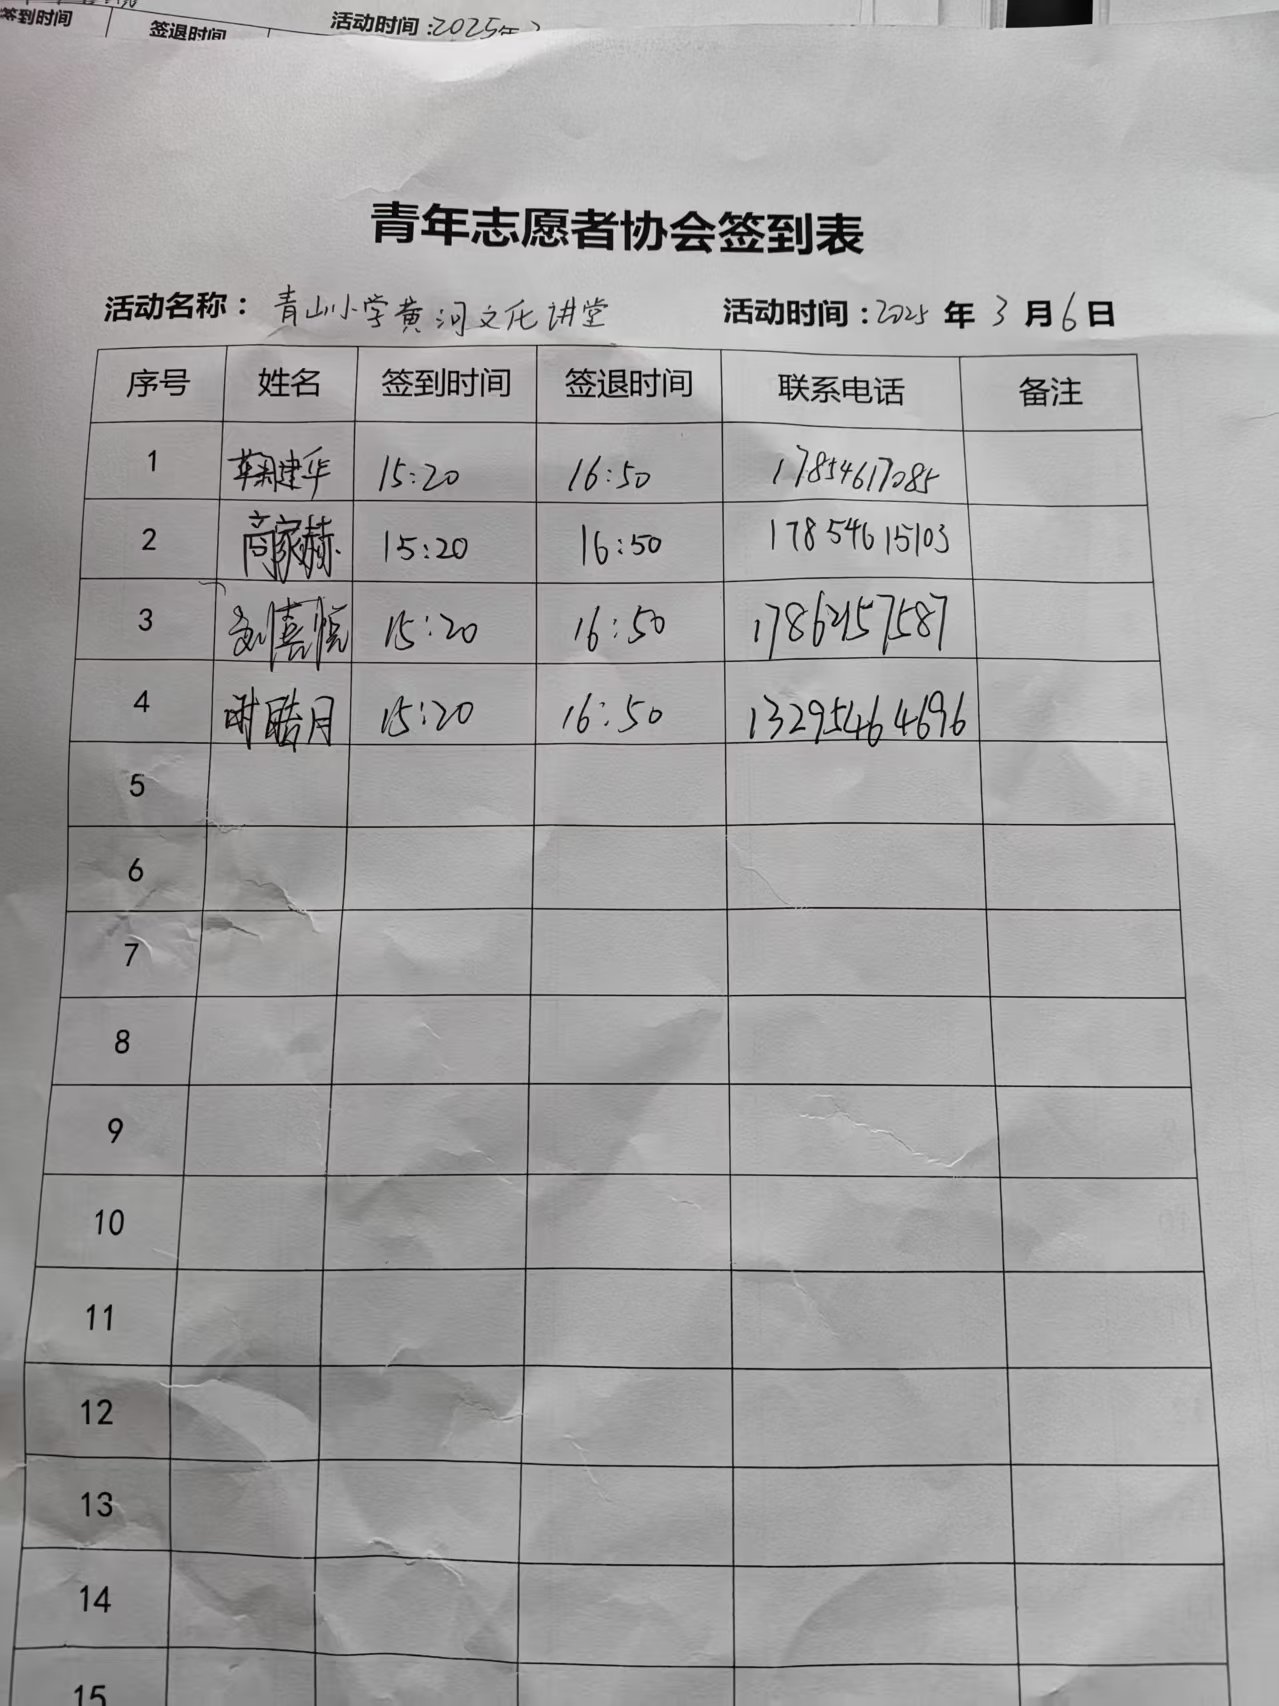 签到时间 签退时间 活动时间:2025年
青年志愿者协会签到表
活动名称: 青山小学黄河文化讲堂 活动时间:2025年3月6日
序号 姓名 签到时间 签退时间 联系电话 备注
1 鞠建华 15:20 16:50 17854617085
2 高家赫 15:20 16:50 17854615103
3 刘喜悦 15:20 16:50
4 时皓月 15:20 16:50 13295464696
5
6
7
8
9
10
11
12
13
14
15